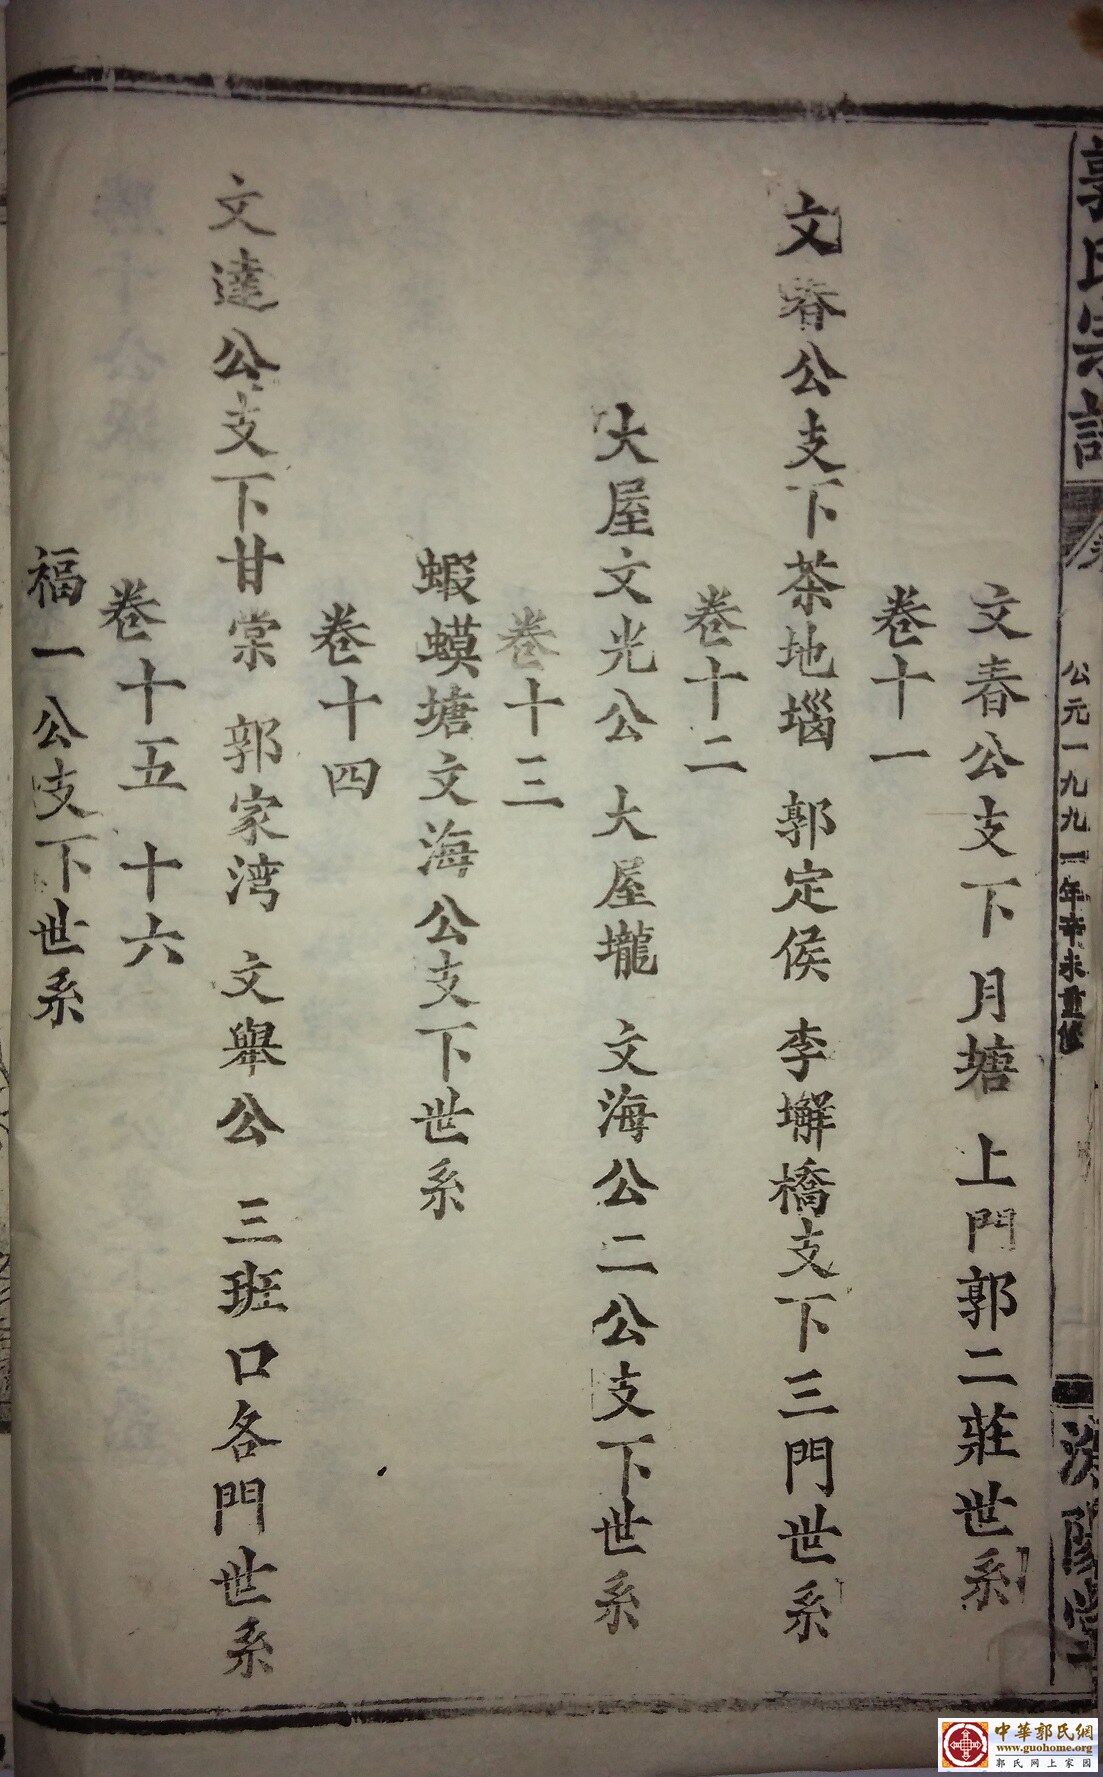 郭氏宗譜
公元一九九一年辛未重修
文春公支下 月塘 上門郭二莊世系
卷十一
文春公支下茶地堖 郭定侯 李墈橋支下三門世系
卷十二
大屋文光公 大屋壠 文海公二公支下世系
卷十三
蝦蟆塘文海公支下世系
卷十四
文達公支下甘棠 郭家湾 文舉公 三班口各門世系
卷十五 十六
福一公支下世系
中華郭氏網
www.guohome.org
郭氏网上家园